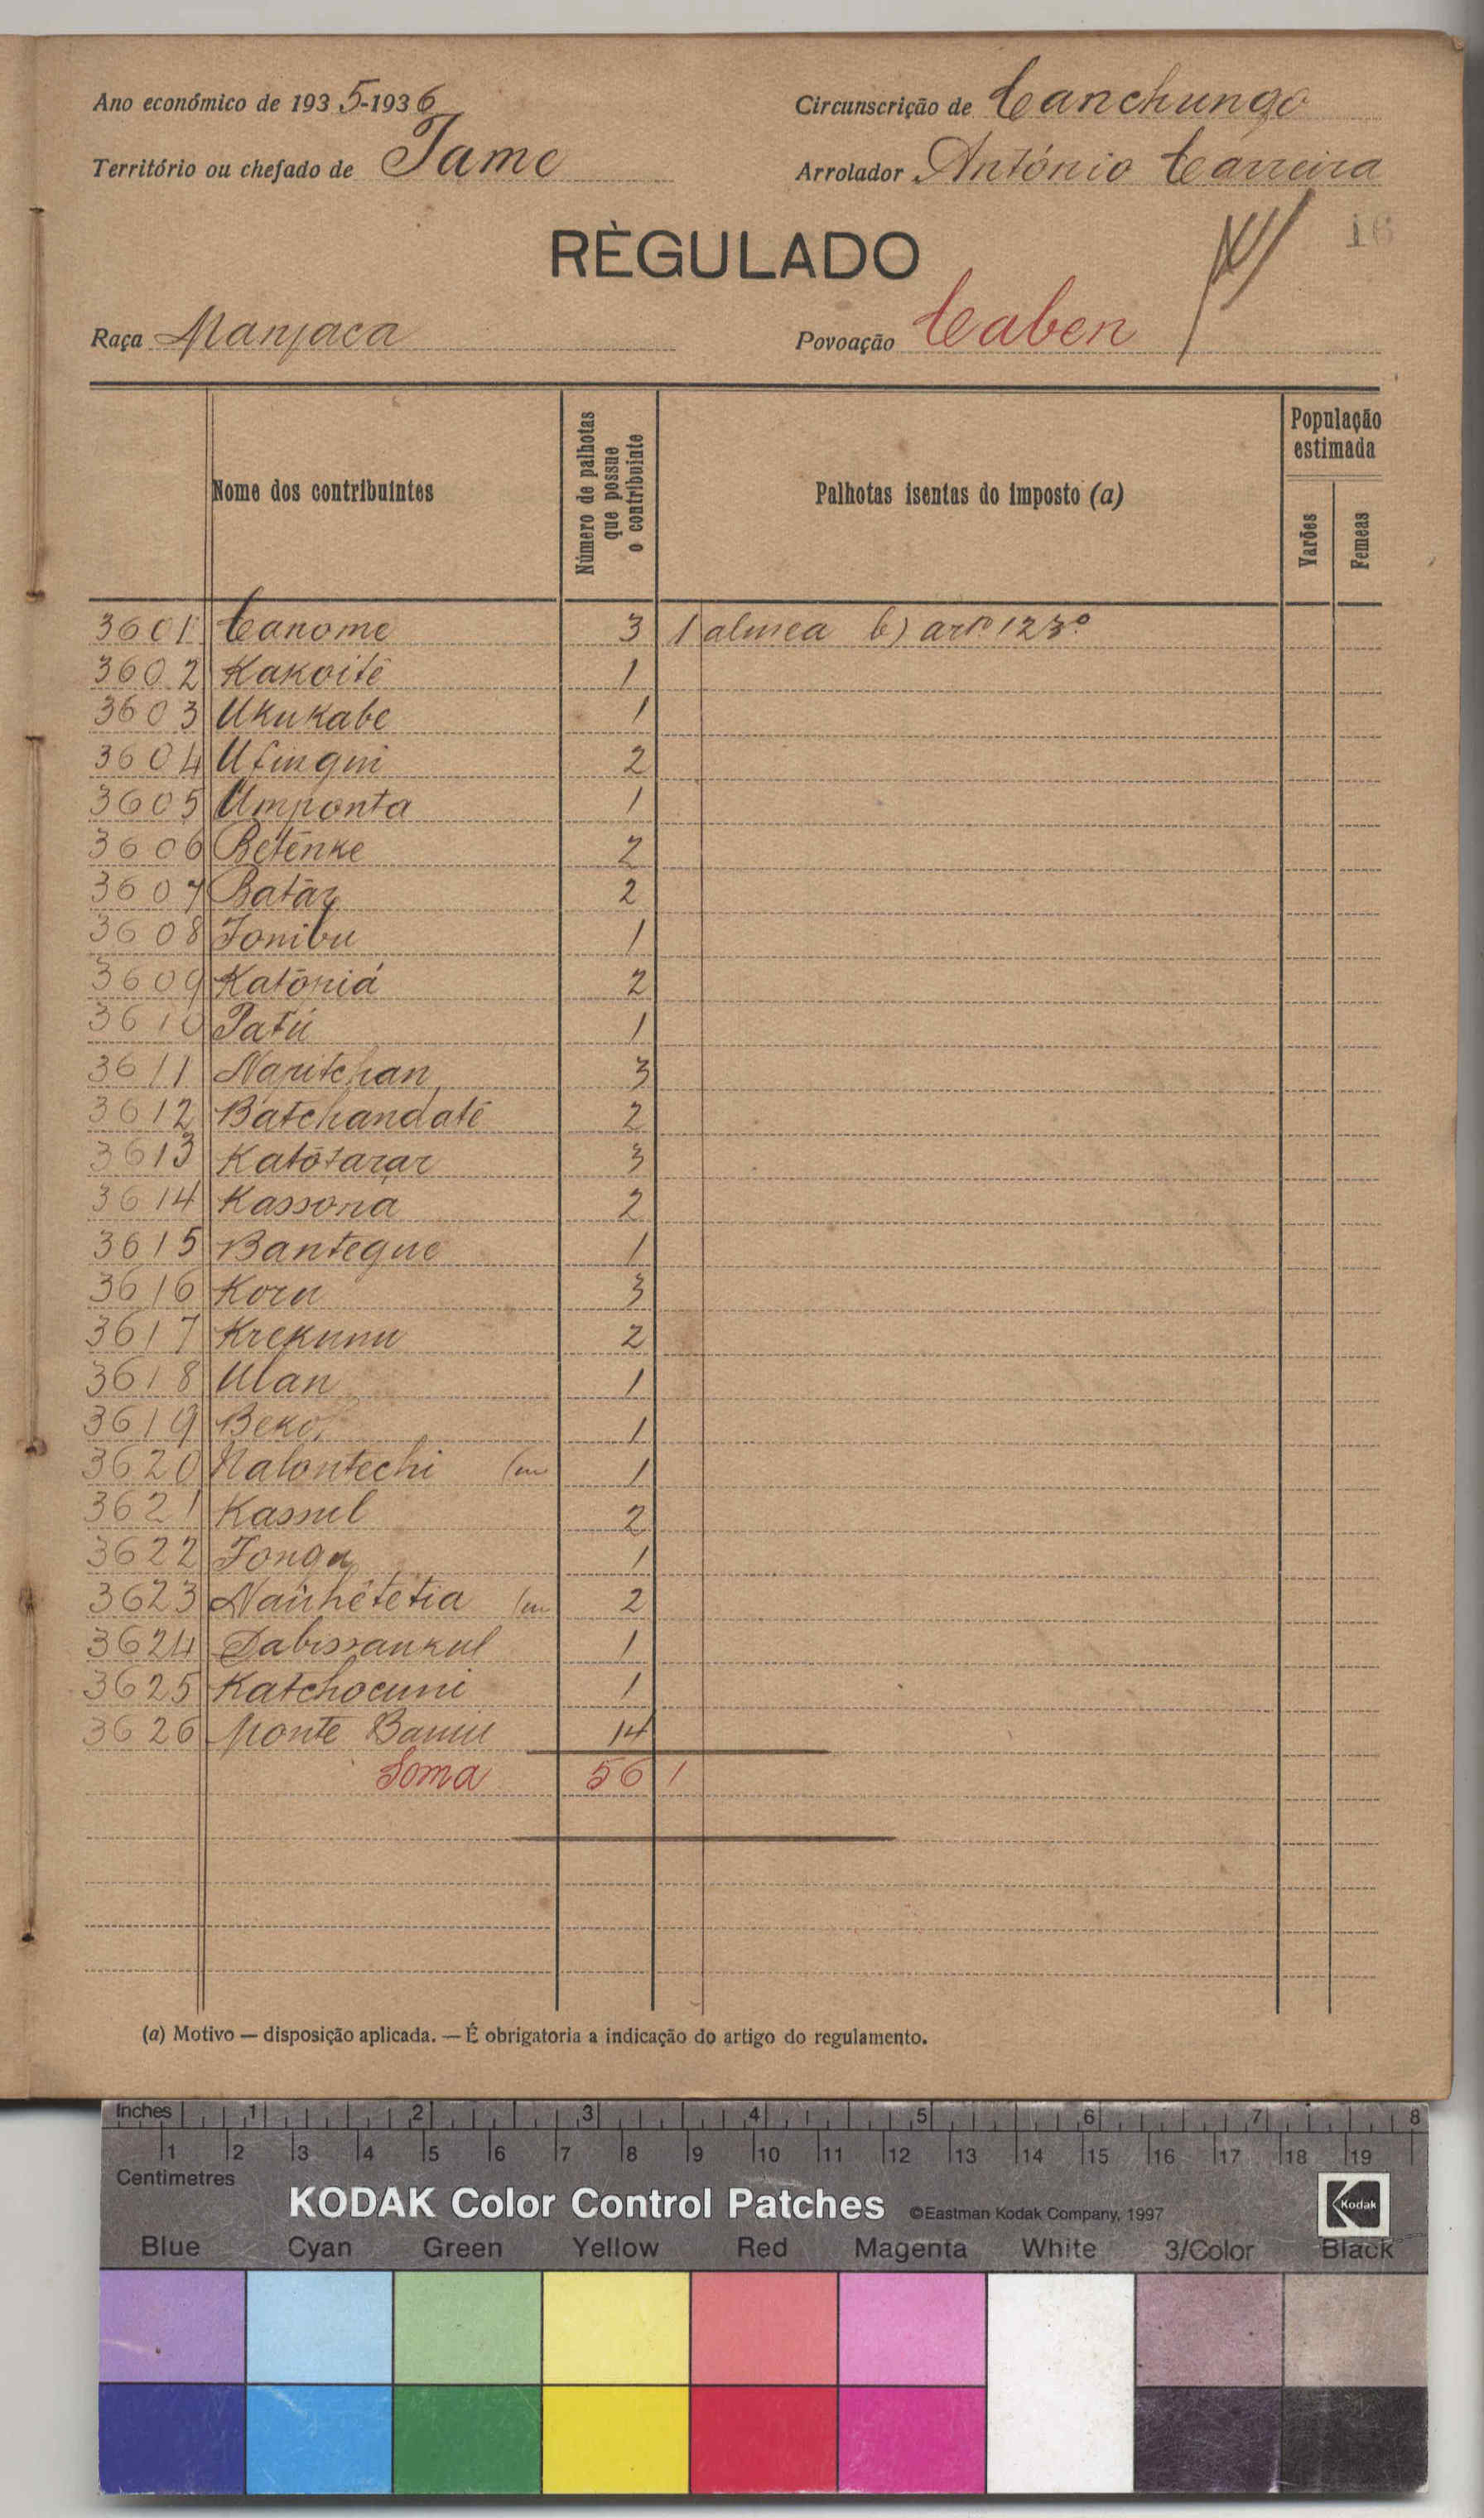 Ano económico de 1935-1936
Circunscrição de Canchungo
Território ou chefado de Tame
Arrolador António Carreira
16
RÈGULADO
Raça Manjaca
Povoação Caben
Nome dos contribuintes
Número de palhotas que possue o contribuinte
Palhotas isentas do imposto (a)
População estimada
Varões
Femeas
3601 Canome 3 1 alinea b) artº 123º
3602 Kakoité 1
3603 Ukukabe 1
3604 Ufingui 2
3605 Umponta 1
3606 Betênke 2
3607 Batár 2
3608 Jonibu 1
3609 Katóniá 2
3610 Patú 1
3611 Naputchan 3
3612 Batchandaté 2
3613 Katótarar 3
3614 Kassona 2
3615 Bantegue 1
3616 Koru 3
3617 Krekunu 2
3618 Ulan 1
3619 Beko 1
3620 Nalontechi 1
3621 Kassul 2
3622 Jonga 1
3623 Nauhétetia 2
3624 Dabissankul 1
3625 Katchocuni 1
3626 Monte 14
Soma 56 1
(a) Motivo — disposição aplicada. — É obrigatoria a indicação do artigo do regulamento.
Inches 1 2 3 4 5 6 7 8
1 2 3 4 5 6 7 8 9 10 11 12 13 14 15 16 17 18 19
Centimetres
KODAK Color Control Patches ©Eastman Kodak Company, 1997 Kodak
Blue Cyan Green Yellow Red Magenta White 3/Color Black